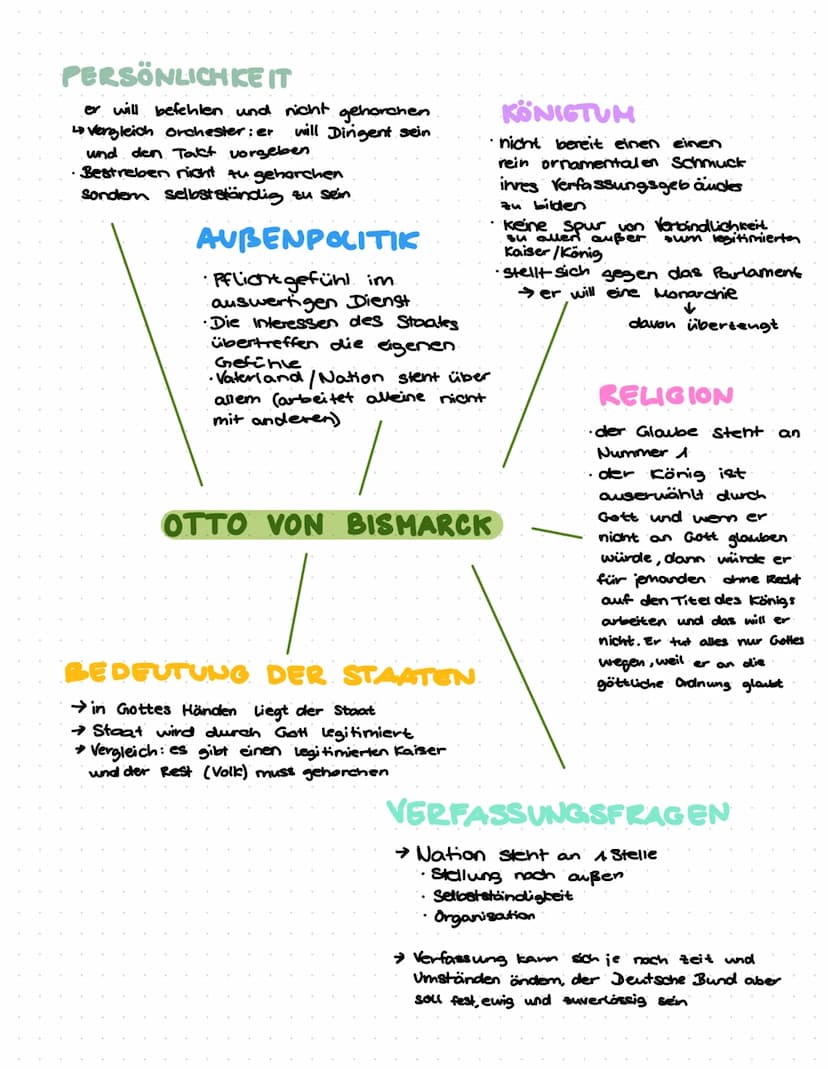 PERSÖNLICHKEIT
er will befehlen und nicht gehorchen
↳ Vergleich Orchester: er will Dirigent sein
und den Takt vorgeben
· Bestreben nicht zu gehorchen
sondern selbstständig zu sein
KÖNIGTUM
· nicht bereit einen einen
rein ornamentalen Schmuck
ihres Verfassungsgebäudes
zu bilden
· keine Spur von Verbindlichkeit
zu allen außer zum legitimierten
Kaiser/König
· stellt sich gegen das Parlament
→ er will eine Monarchie
↓
davon überzeugt
AUßENPOLITIK
· Pflichtgefühl im
auswertigen Dienst
· Die Interessen des Staates
übertreffen die eigenen
Gefühle
· Vaterland/Nation steht über
allem (arbeitet alleine nicht
mit anderen)
RELIGION
· der Glaube steht an
Nummer 1
· der König ist
auserwählt durch
Gott und wenn er
nicht an Gott glauben
würde, dann würde er
für jemanden ohne Recht
auf den Titel des Königs
arbeiten und das will er
nicht. Er tut alles nur Gottes
wegen, weil er an die
göttliche Ordnung glaubt
OTTO VON BISMARCK
BEDEUTUNG DER STAATEN
→ in Gottes Händen liegt der Staat
→ Staat wird durch Gott legitimiert
→ Vergleich: es gibt einen legitimierten Kaiser
und der Rest (Volk) muss gehorchen
VERFASSUNGSFRAGEN
→ Nation steht an 1 Stelle
· Stellung nach außen
· Selbstständigkeit
· Organisation
→ Verfassung kann sich je nach Zeit und
Umständen ändern, der Deutsche Bund aber
soll fest, ewig und zuverlässig sein